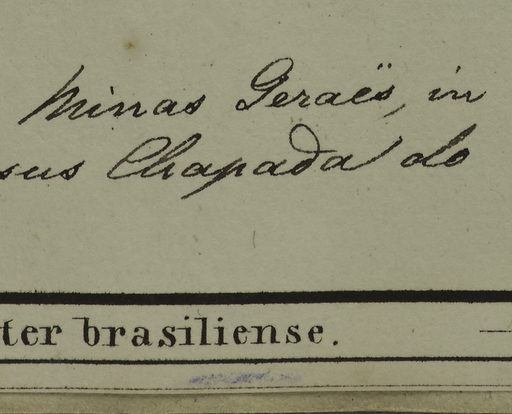 Minas Geraës, in
sus Chapada do
ter brasiliense.